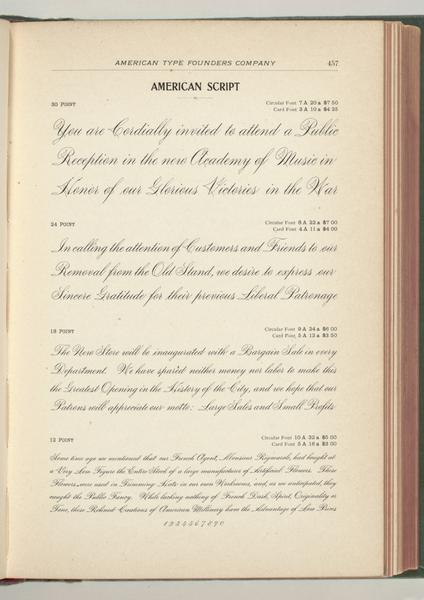 AMERICAN TYPE FOUNDERS COMPANY 457
AMERICAN SCRIPT
30 POINT Circular Font 7 A 20 a $7 50
Card Font 3 A 10 a $4 25
You are Cordially invited to attend a Public
Reception in the new Academy of Music in
Honor of our Glorious Victories in the War
24 POINT Circular Font 8 A 22 a $7 00
Card Font 4 A 11 a $4 00
In calling the attention of Customers and Friends to our
Removal from the Old Stand, we desire to express our
Sincere Gratitude for their previous Liberal Patronage
18 POINT Circular Font 9 A 24 a $6 00
Card Font 5 A 12 a $3 50
The New Store will be inaugurated with a Bargain Sale in every
Department. We have spared neither money nor labor to make this
the Greatest Opening in the History of the City, and we hope that our
Patrons will appreciate our motto: Large Sales and Small Profits
12 POINT Circular Font 10 A 32 a $5 00
Card Font 5 A 16 a $3 00
Some time ago we mentioned that our French Agent, Monsieur had bought at
a Very Low Figure the Entire Stock of a large manufacturer of Artificial Flowers. These
Flowers were used in Trimming Hats in our own Workrooms, and, as we anticipated, they
caught the Public Fancy. While lacking nothing of French Dash, Spirit, Originality or
Tone, these Refined Creations of American Millinery have the Advantage of Low Prices
1234567890